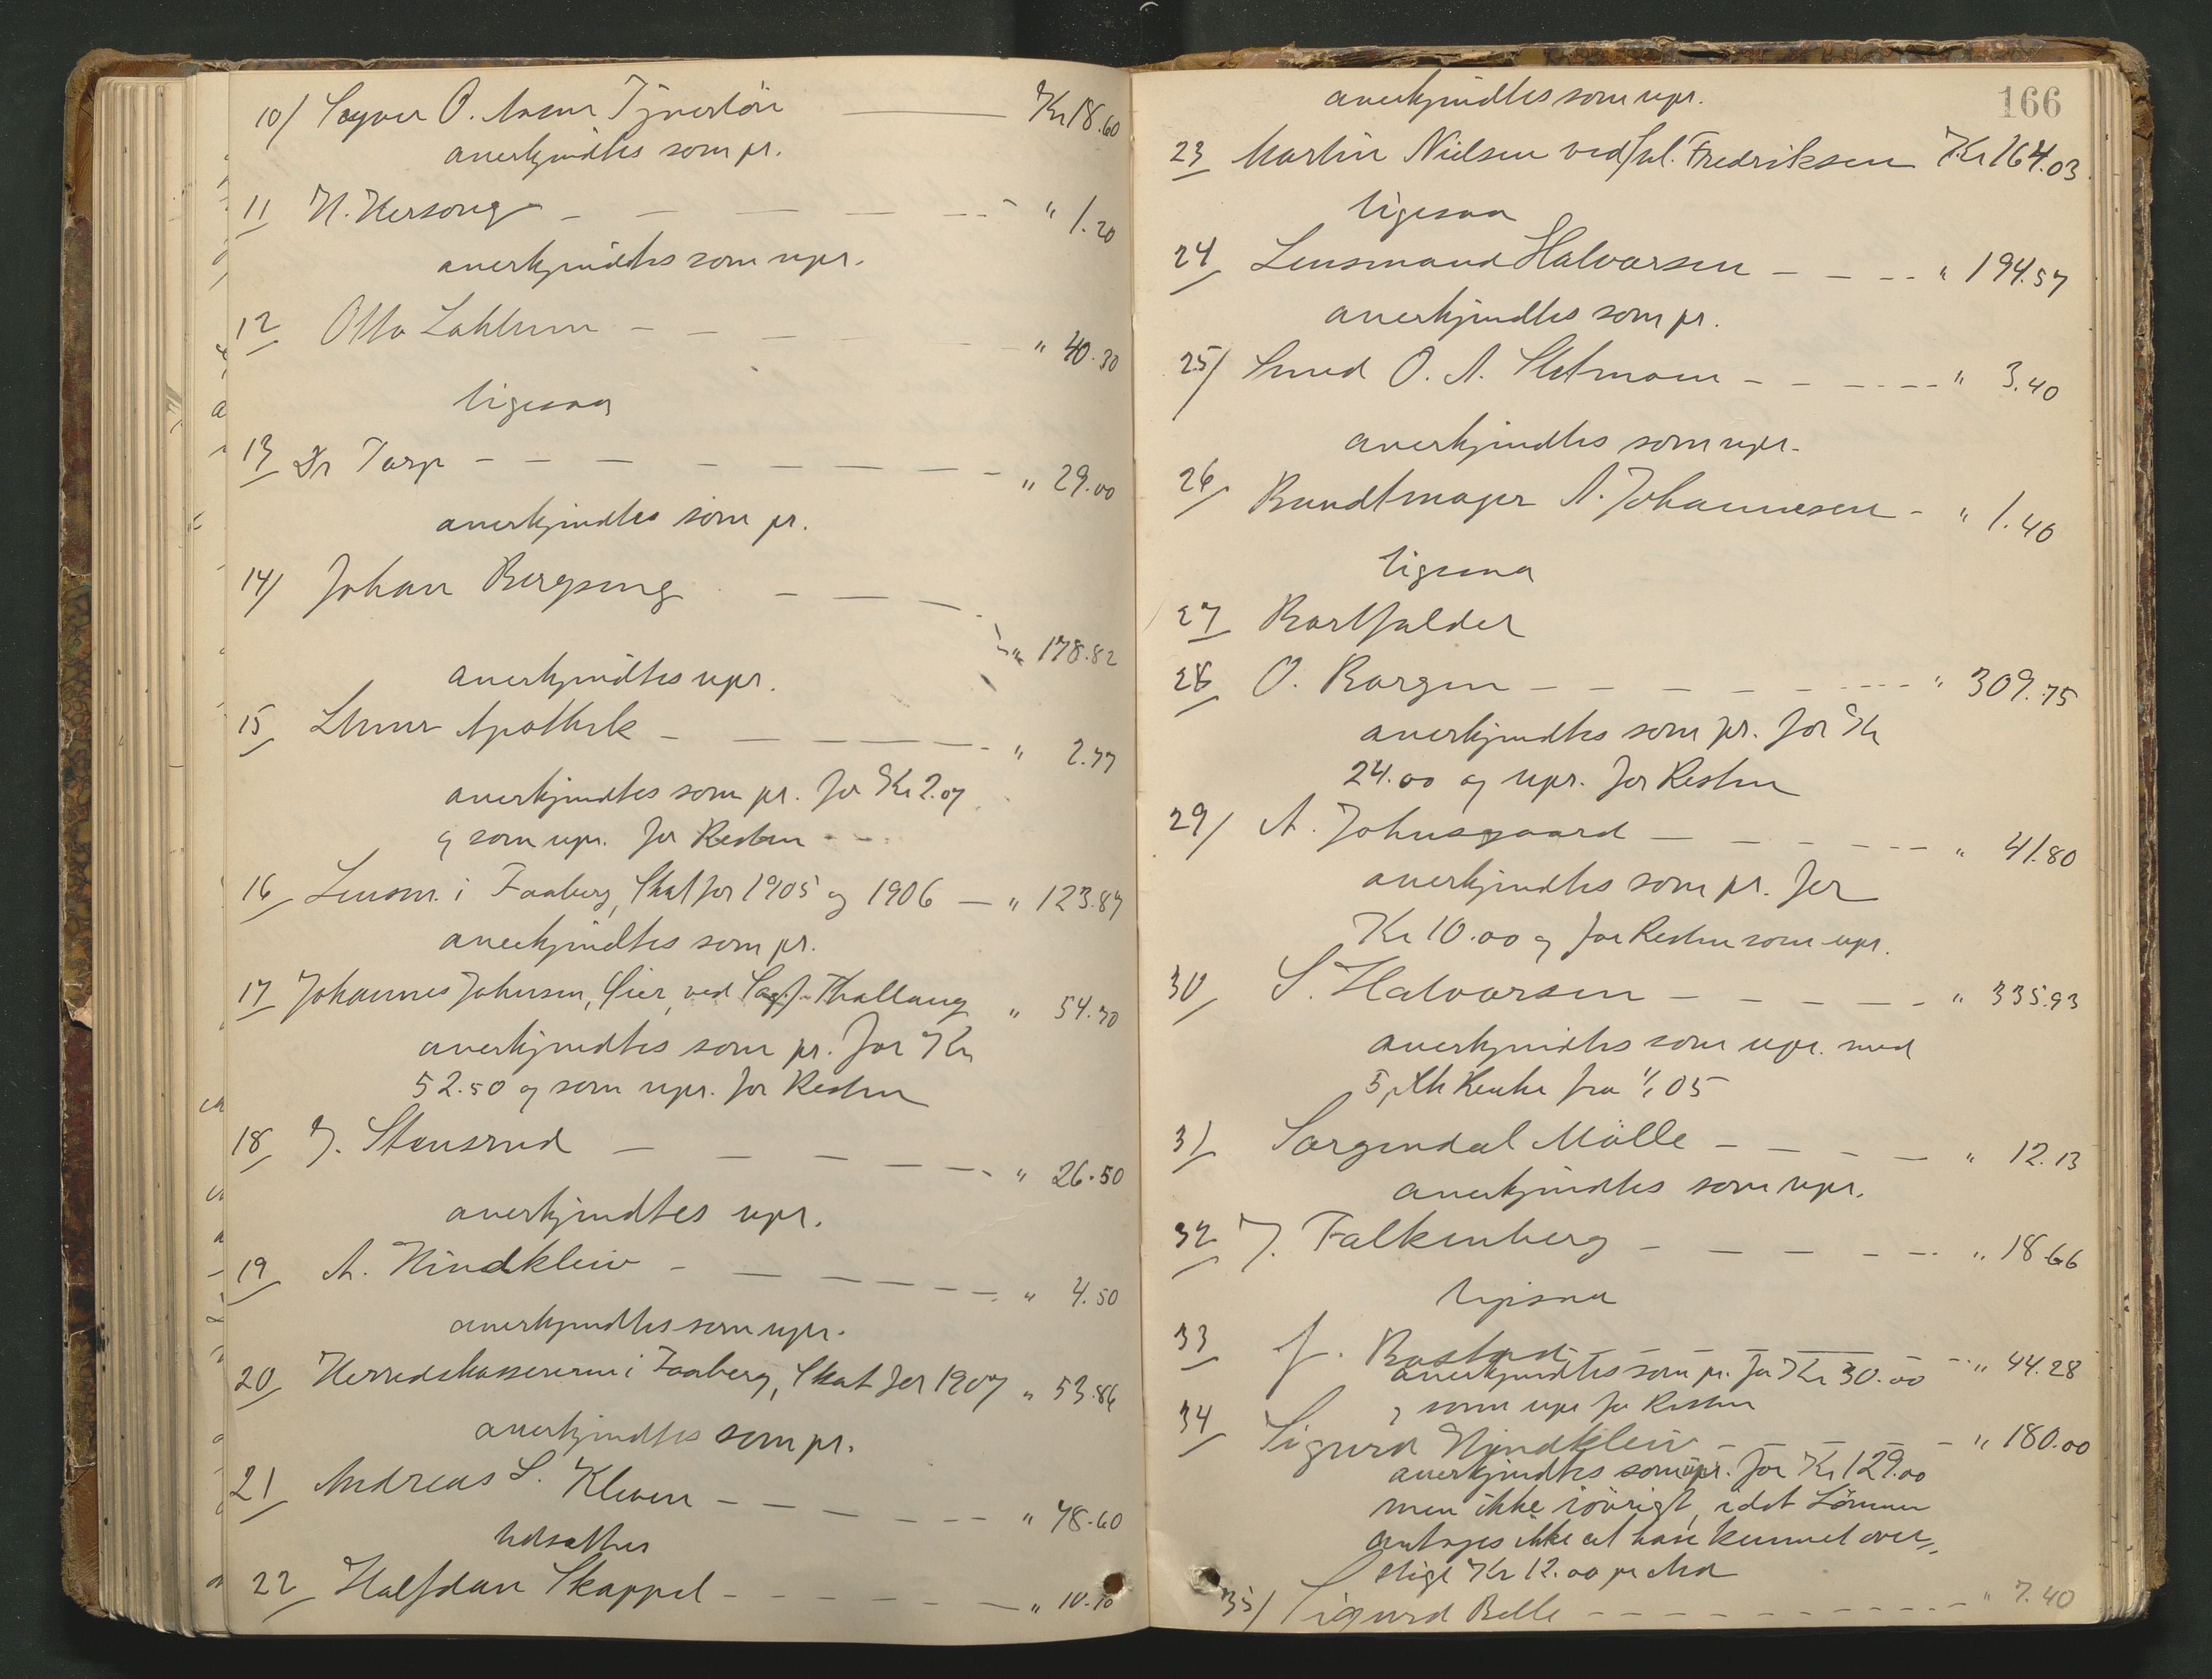 10/ O. Kr 18.60
anerkjendtes som pr.
11 " 1.20
anerkjendtes som upr.
12 Otto " 40.30
ligesaa
13 Dr Tarp " 29.00
anerkjendtes som pr.
14/ Johan Bergseng
" 178.82
anerkjendtes upr.
15 Apothek " 2.77
anerkjendtes som pr. for Kr 2.07
og som upr. for Resten
16 Lensm. i Faaberg, Skat for 1905 og 1906 " 123.87
anerkjendtes som pr.
17 Johannes Johnsen, Øier, ved Sagf. Thallaug " 54.70
anerkjendtes som pr. for Kr
52.50 og som upr. for Resten
18 J. Stensrud " 26.50
anerkjendtes upr.
19 A. Hindkleiv " 4.50
anerkjendtes som upr.
20 Herredskassereren i Faaberg, Skat for 1907 " 53.86
anerkjendtes som pr.
21 Andreas L. Kleven " 78.60
Udsattes
22 Halfdan Skappel " 10.70
166
anerkjendtes som upr.
23 Martin Nielsen ved Fredriksen Kr 164.03
ligesaa
24 Lensmand Halvorsen " 194.57
anerkjendtes som pr.
25/ Smed O. A. " 3.40
anerkjendtes som upr.
26 Bundtmager A. Johannesen " 1.40
ligesaa
27 Bortfalder
28 O. Borgen " 309.75
anerkjendtes som pr. for Kr
24.00 og upr. for Resten
29/ A. Johnsgaard " 41.80
anerkjendtes som pr. for
Kr 10.00 og for Resten som upr.
30 S. Halvorsen " 335.93
anerkjendtes som upr. med
5 pCt Rente fra 1/1 05
31 Sorgendal Mölle " 12.13
anerkjendtes som upr.
32 J. Falkenberg " 18.66
ligesaa
33 J. Bastad " 44.28
anerkjendtes som pr. for Kr 30.00
og som upr for Resten
34 Sigurd Hindkleiv " 180.00
anerkjendtes som pr. for Kr 129.00
men ikke iövrigt, idet Lönnen
antages ikke at have kunnet over-
stige Kr 12.00 pr Md
35/ Sigurd Belle " 7.40